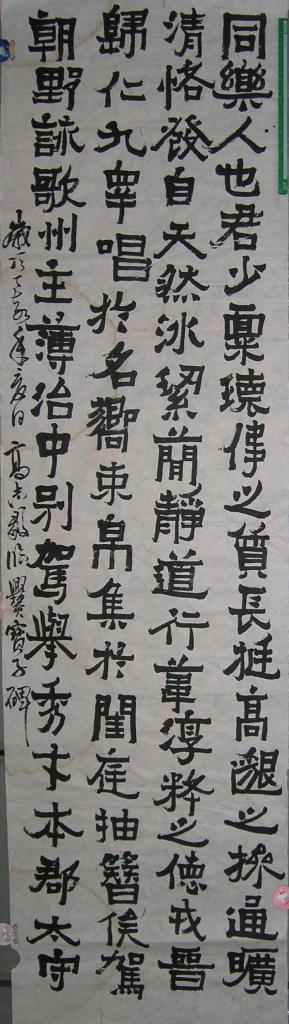 同樂人也君少稟瓌偉之質長挺高邈之操通曠
清恪發自天然冰絜簡靜道行葦淳粹之德戎晉
歸仁九皋唱於名嚮束帛集於閨庭抽簪俟駕
朝野詠歌州主薄治中別駕舉秀才本郡太守
歲次丁亥年日高臨爨寶子碑